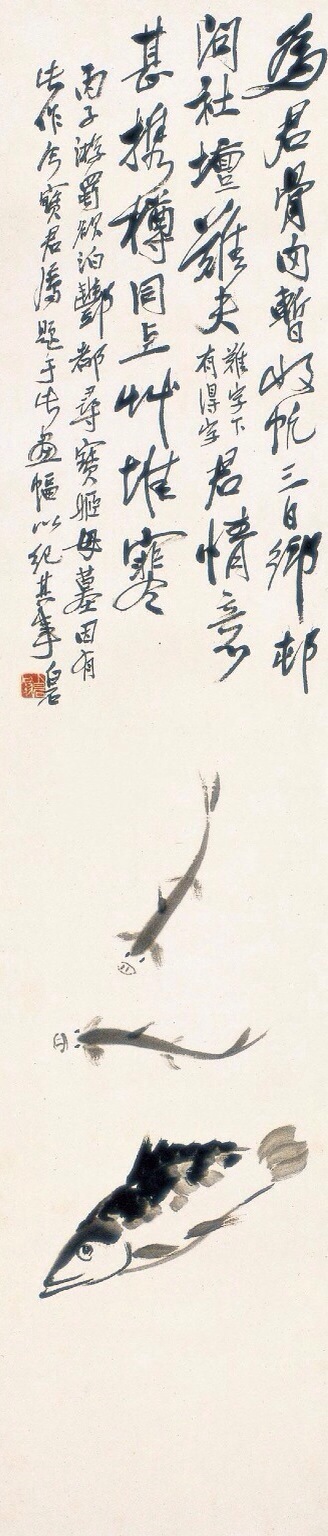 為君骨肉暫收帆三日鄉邨
問社壇難夫
難字下
有得字
君情意
甚携樽同上艸堆寒
丙子游蜀欲泊酆都尋寶姬母墓因有
此作今寶君屬題于此畫幅以紀其事白石